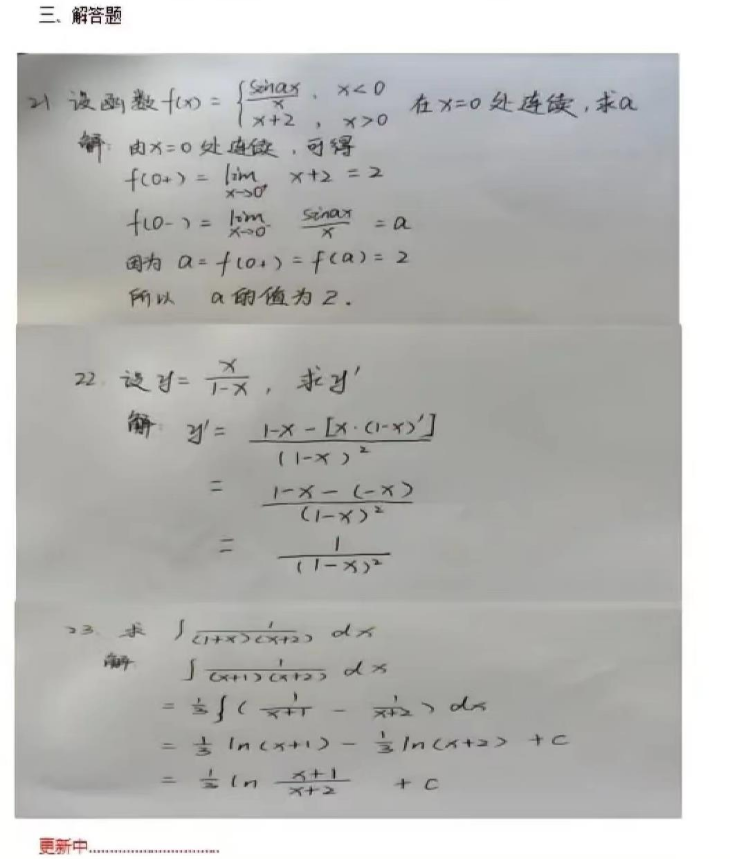 三、解答题
21 设函数 f(x) = { sinax/x , x<0
x+2 , x>0 在 x=0 处连续, 求a
解: 由x=0 处连续, 可得
f(0+) = lim x→0⁺ x+2 = 2
f(0-) = lim x→0⁻ sinax/x = a
因为 a = f(0+) = f(a) = 2
所以 a的值为2.
22. 设y = x/(1-x) , 求y'
解 y' = (1-x-[x·(1-x)'])/(1-x)²
= (1-x-(-x))/(1-x)²
= 1/(1-x)²
23. 求 ∫ 1/((1+x)(x+2)) dx
解 ∫ 1/((x+1)(x+2)) dx
= 1/3 ∫ ( 1/(x+1) - 1/(x+2) ) dx
= 1/3 ln(x+1) - 1/3 ln(x+2) + C
= 1/3 ln (x+1)/(x+2) + C
更新中..............................